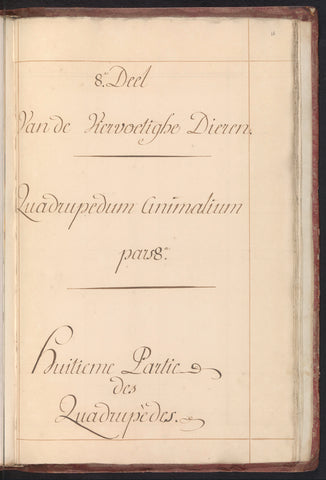 8.e Deel
Van de Viervoetighe Dieren.
Quadrupedum Animalium
pars 8.a
Huitieme Partie
des
Quadrupèdes.